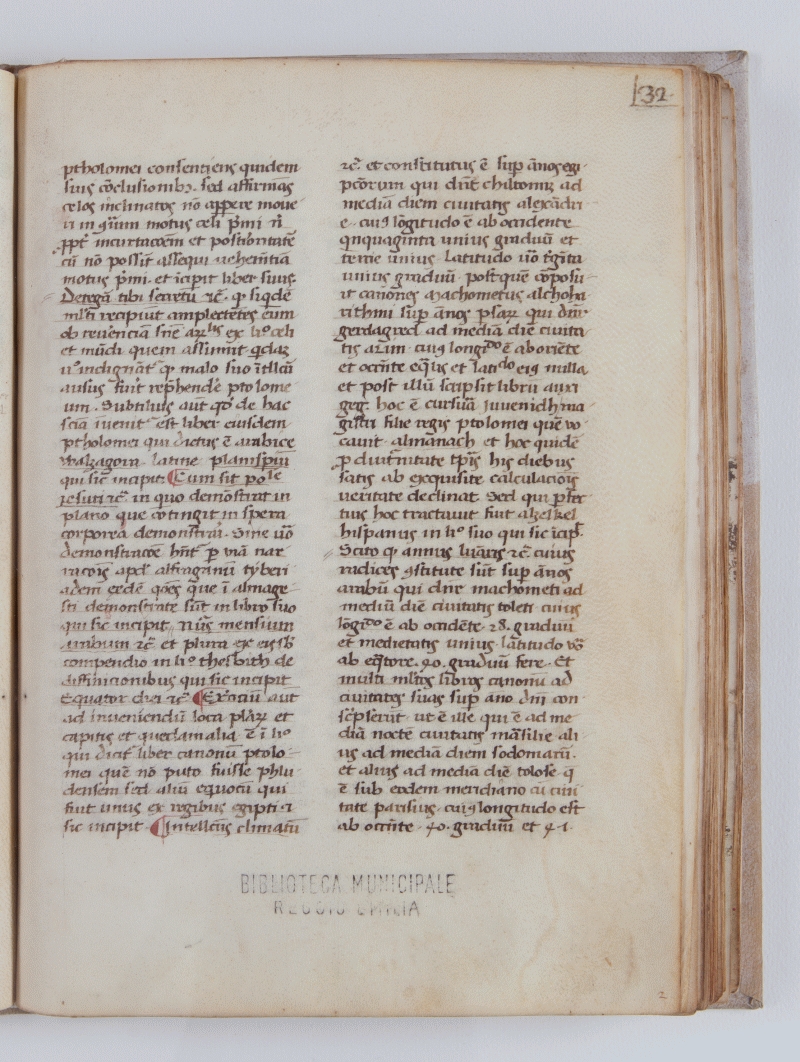 132
ptholomei consentiens quidem
suis cōclusionibꝫ. sed affirmās
celos inclinatos nō appere moue
ri in motus celi pͥmi
incurtacōem et posteritatē
cū nō possit assequi uehemētiā
motus pͥmi. et īcipit liber suus.
Detegā tibi secretū ꝛcͣ. qꝫ siqͥdē
ml̄ti recipiūt amplectētes eum
ob reuerēciā ex li° celi
et mūdi quem assumit qͥdaꝫ
u° indignāt͛ qꝫ malo suo ītl̄l̄cū
ausus fuit rep̄hendē ptolome
um. Subtilius aūt qd̓ de hac
sciā īuenit͛ est liber eiusdem
ptholomei qui dictus ē arabice
walzagora. latine planispiū
qui sic incipit. ¶ Cum sit po^le
iesuri ꝛcͣ in quo demōstrat in
plano que cōtingit in spera
corporea demonstrai. Sine uō
demonstracōe hn̄t ꝑ uiā nar
racōis apd̓ alfraganū tyberi
adem eedē qōes que ī almage
sti demonstrate sūt in libro suo
qui sic incipit. nūs mensium
arabum ꝛcͣ et plura ex eis sb̓
compendio in li° thesbith de
diffinicionibus qui sic incipit
Equator diei ꝛcͣ ¶ Erociū aūt
ad inueniendū loca plāꝝ et
capitis et quedam alia ē ī li°
qui dicit͛ liber canonū ptolo
mei quē nō puto fuisse phlu
densem sed aliū equocū qui
fuit unus ex regibus egipti ⁊
sic incipit ¶ Intellectus climatū
ꝛcͣ. et constitutus ē suꝑ ānos egi
pcōrum qui dn̄t chiltomiꝫ ad
mediā diem ciuitatis alexādri
e. cuiꝰ lōgitudo ē ab occidente
qnquaginta unius graduū et
tercie unius. latitudo uō t͛gīta
unius graduū. post quē cōposu
it canones machometus alchoha
rithmi suꝑ ānos ꝑsaꝝ qui dn̄r
gerdagred ad mediā diē ciuita
tis arim. cuiꝰ longi^do ē ab oriēte
et occn̄te eq̄lis et lati^do eiꝰ nulla
et post illū scripsit librū auxi
geg. hoc ē cursuū iuuenidh ma
gistri filie regis ptolomei quē uo
cauit almanach et hoc quidē
ꝑ diut͛nitate tꝑis his diebus
satis ab exquisite calculaciōis
ueritate declinat. Sed qui ꝑfec
tius hoc tractauit fuit azel kel
hispanus in li° suo qui sic īcip̄.
Scito qꝫ annus lūaris ꝛcͣ cuius
radices ꝯstitute sūt suꝑ ānos
arabū qui dn̄r machometi ad
mediū diē ciuitatis toleti cuius
lōgi^do ē ab occidēte. 28. graduū
et medietatis unius. latitudo uō
ab eq̄tore. 40. graduū fere. Et
multi ml̄tis libros canonū ad
ciuitates suas suꝑ āno dn̄i con
sc̄pserūt. ut ē ille qui ē ad me
diā noctē ciuitatis māsilie ali
us ad mediā diem sodomarū.
et alius ad mediā diē tolose q̄
ē sub eodem meridiano cū ciui
tate parisius. cuiꝰ longitudo est
ab occn̄te. 40. graduū et 41.
BIBLIOTECA MUNICIPALE
REGGIO EMILIA
2